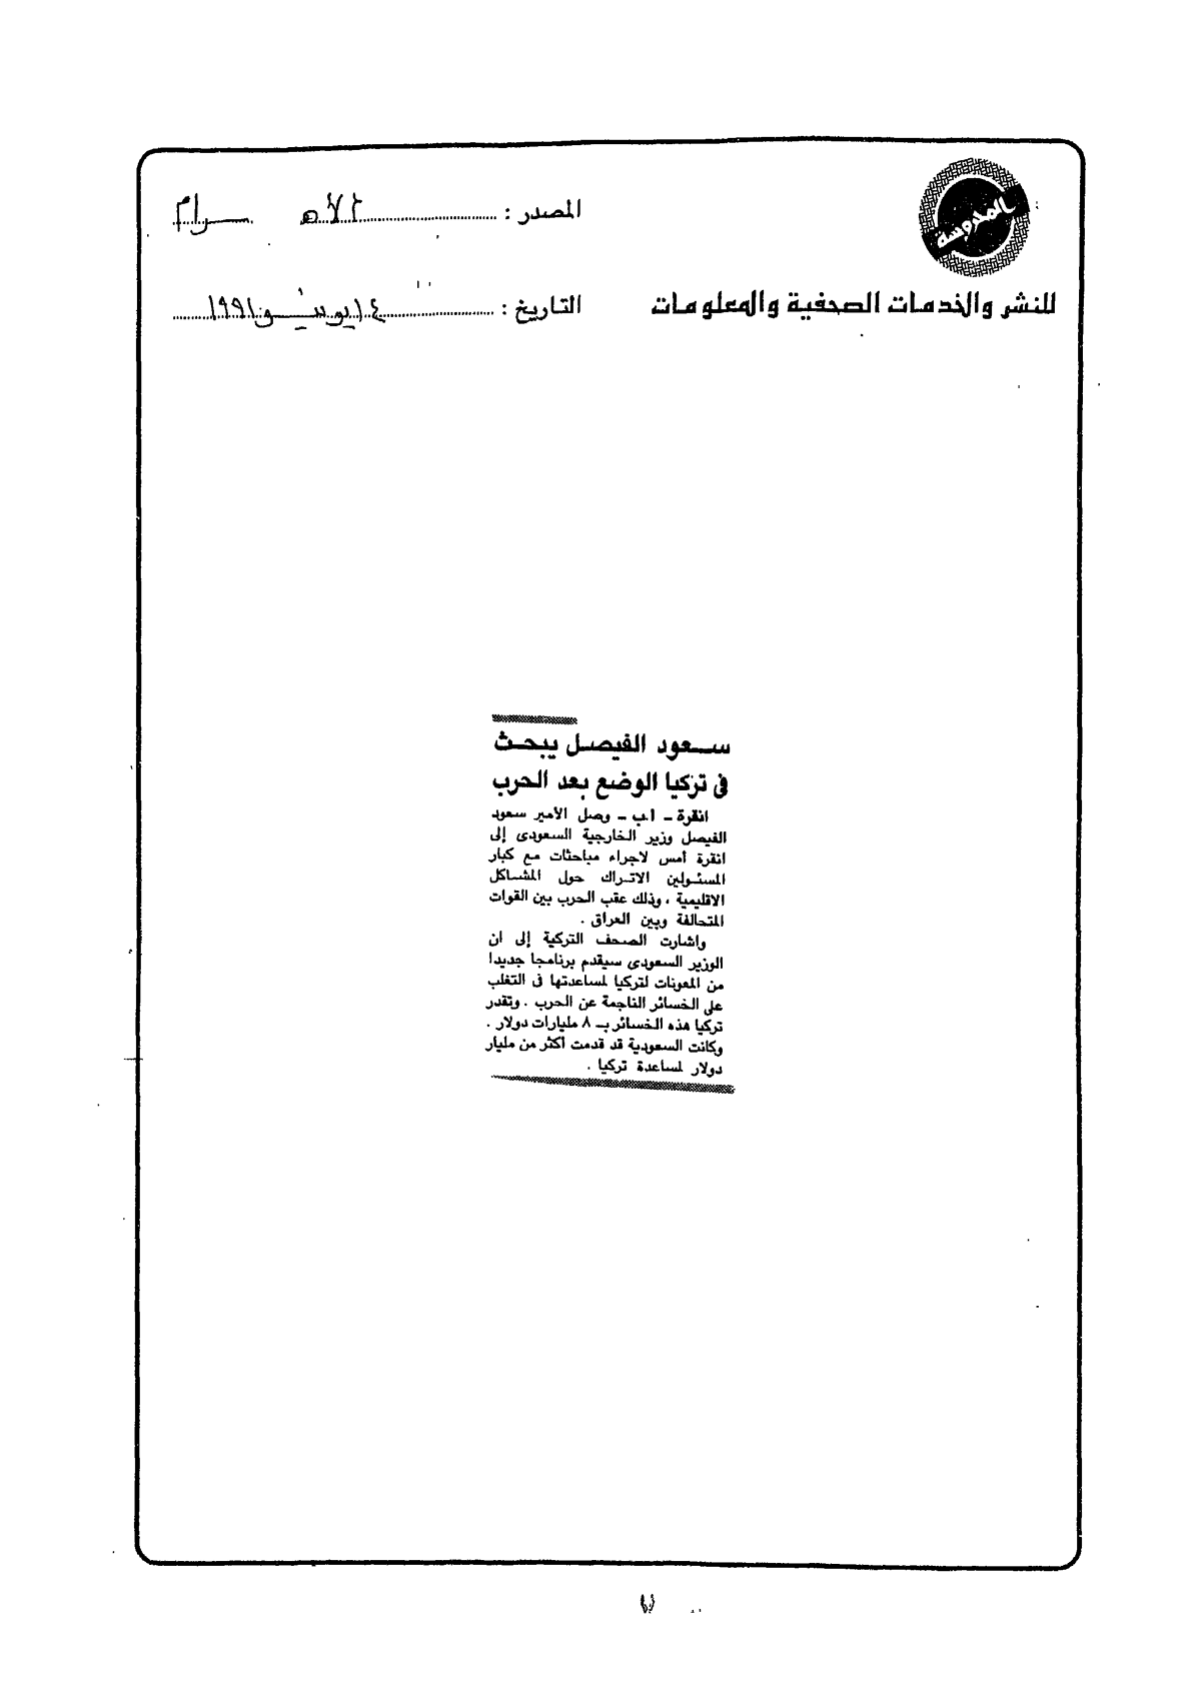 المحروسة
للنشر والخدمات الصحفية والمعلومات
المصدر : الأهـــرام
التاريخ : ١٤ يونيـــو ١٩٩١
ســعود الفيصــل يبحـث
فى تركيا الوضع بعد الحرب
انقرة ـ ا.ب ـ وصل الأمير سعود
الفيصل وزير الخارجية السعودى إلى
انقرة أمس لاجراء مباحثات مع كبار
المسئولين الاتراك حول المشاكل
الاقليمية ، وذلك عقب الحرب بين القوات
المتحالفة وبين العراق .
واشارت الصحف التركية إلى ان
الوزير السعودى سيقدم برنامجا جديدا
من المعونات لتركيا لمساعدتها فى التغلب
على الخسائر الناجمة عن الحرب . وتقدر
تركيا هذه الخسائر بـ ٨ مليارات دولار .
وكانت السعودية قد قدمت اكثر من مليار
دولار لمساعدة تركيا .